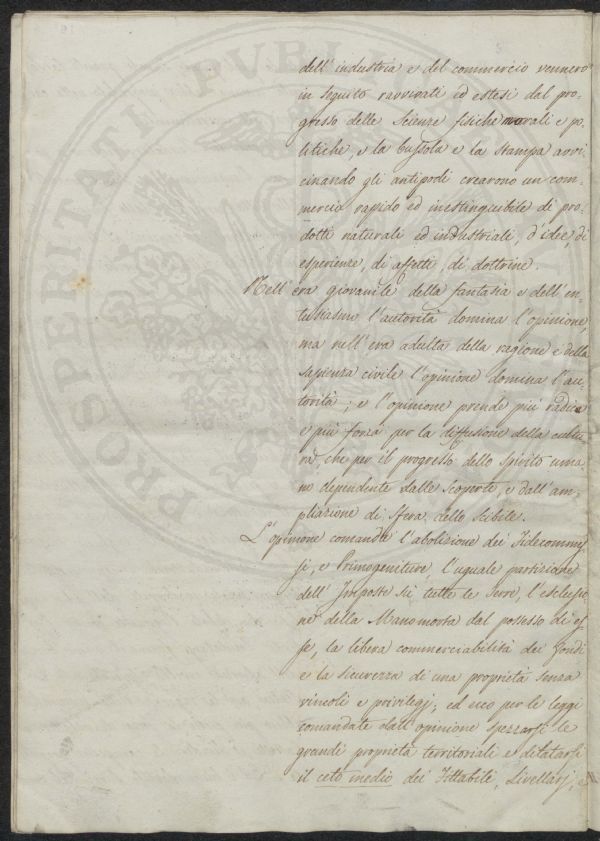 dell'industria e del commercio vennero
in seguito ravvivati ed estesi dal pro-
gresso delle Scienze fisiche morali e po-
litiche, e la bussola e la stampa avvi-
cinando gli antipodi crearono un com-
mercio rapido ed inestinguibile di pro-
dotti naturali ed industriali, d'idee, di
esperienze, di affetti, di dottrine.
Nell'era giovanile della fantasia e dell'en-
tusiasmo l'autorità domina l'opinione,
ma nell'era adulta della ragione e della
sapienza civile l'opinione domina l'au-
torità; e l'opinione prende più radice
e più forza per la diffusione della cultu-
ra, che per il progresso dello spirito uma-
no dependente dalle scoperte, e dall'am-
pliazione di sfera dello scibile.
L'opinione comandò l'abolizione dei Fidecommis-
si, e Primogeniture, l'uguale partizione
dell'Imposte su tutte le terre, l'esclusio-
ne della Manomorta dal possesso di es-
se, la libera commerciabilità dei fondi
e la sicurezza di una proprietà senza
vincoli e privilegj; ed ecco per le leggi
comandate dall'opinione spezzarsi le
grandi proprietà territoriali e dilatarsi
il ceto medio dei Fittabili, Livellarj, e
PROSPERITATI PVBLI